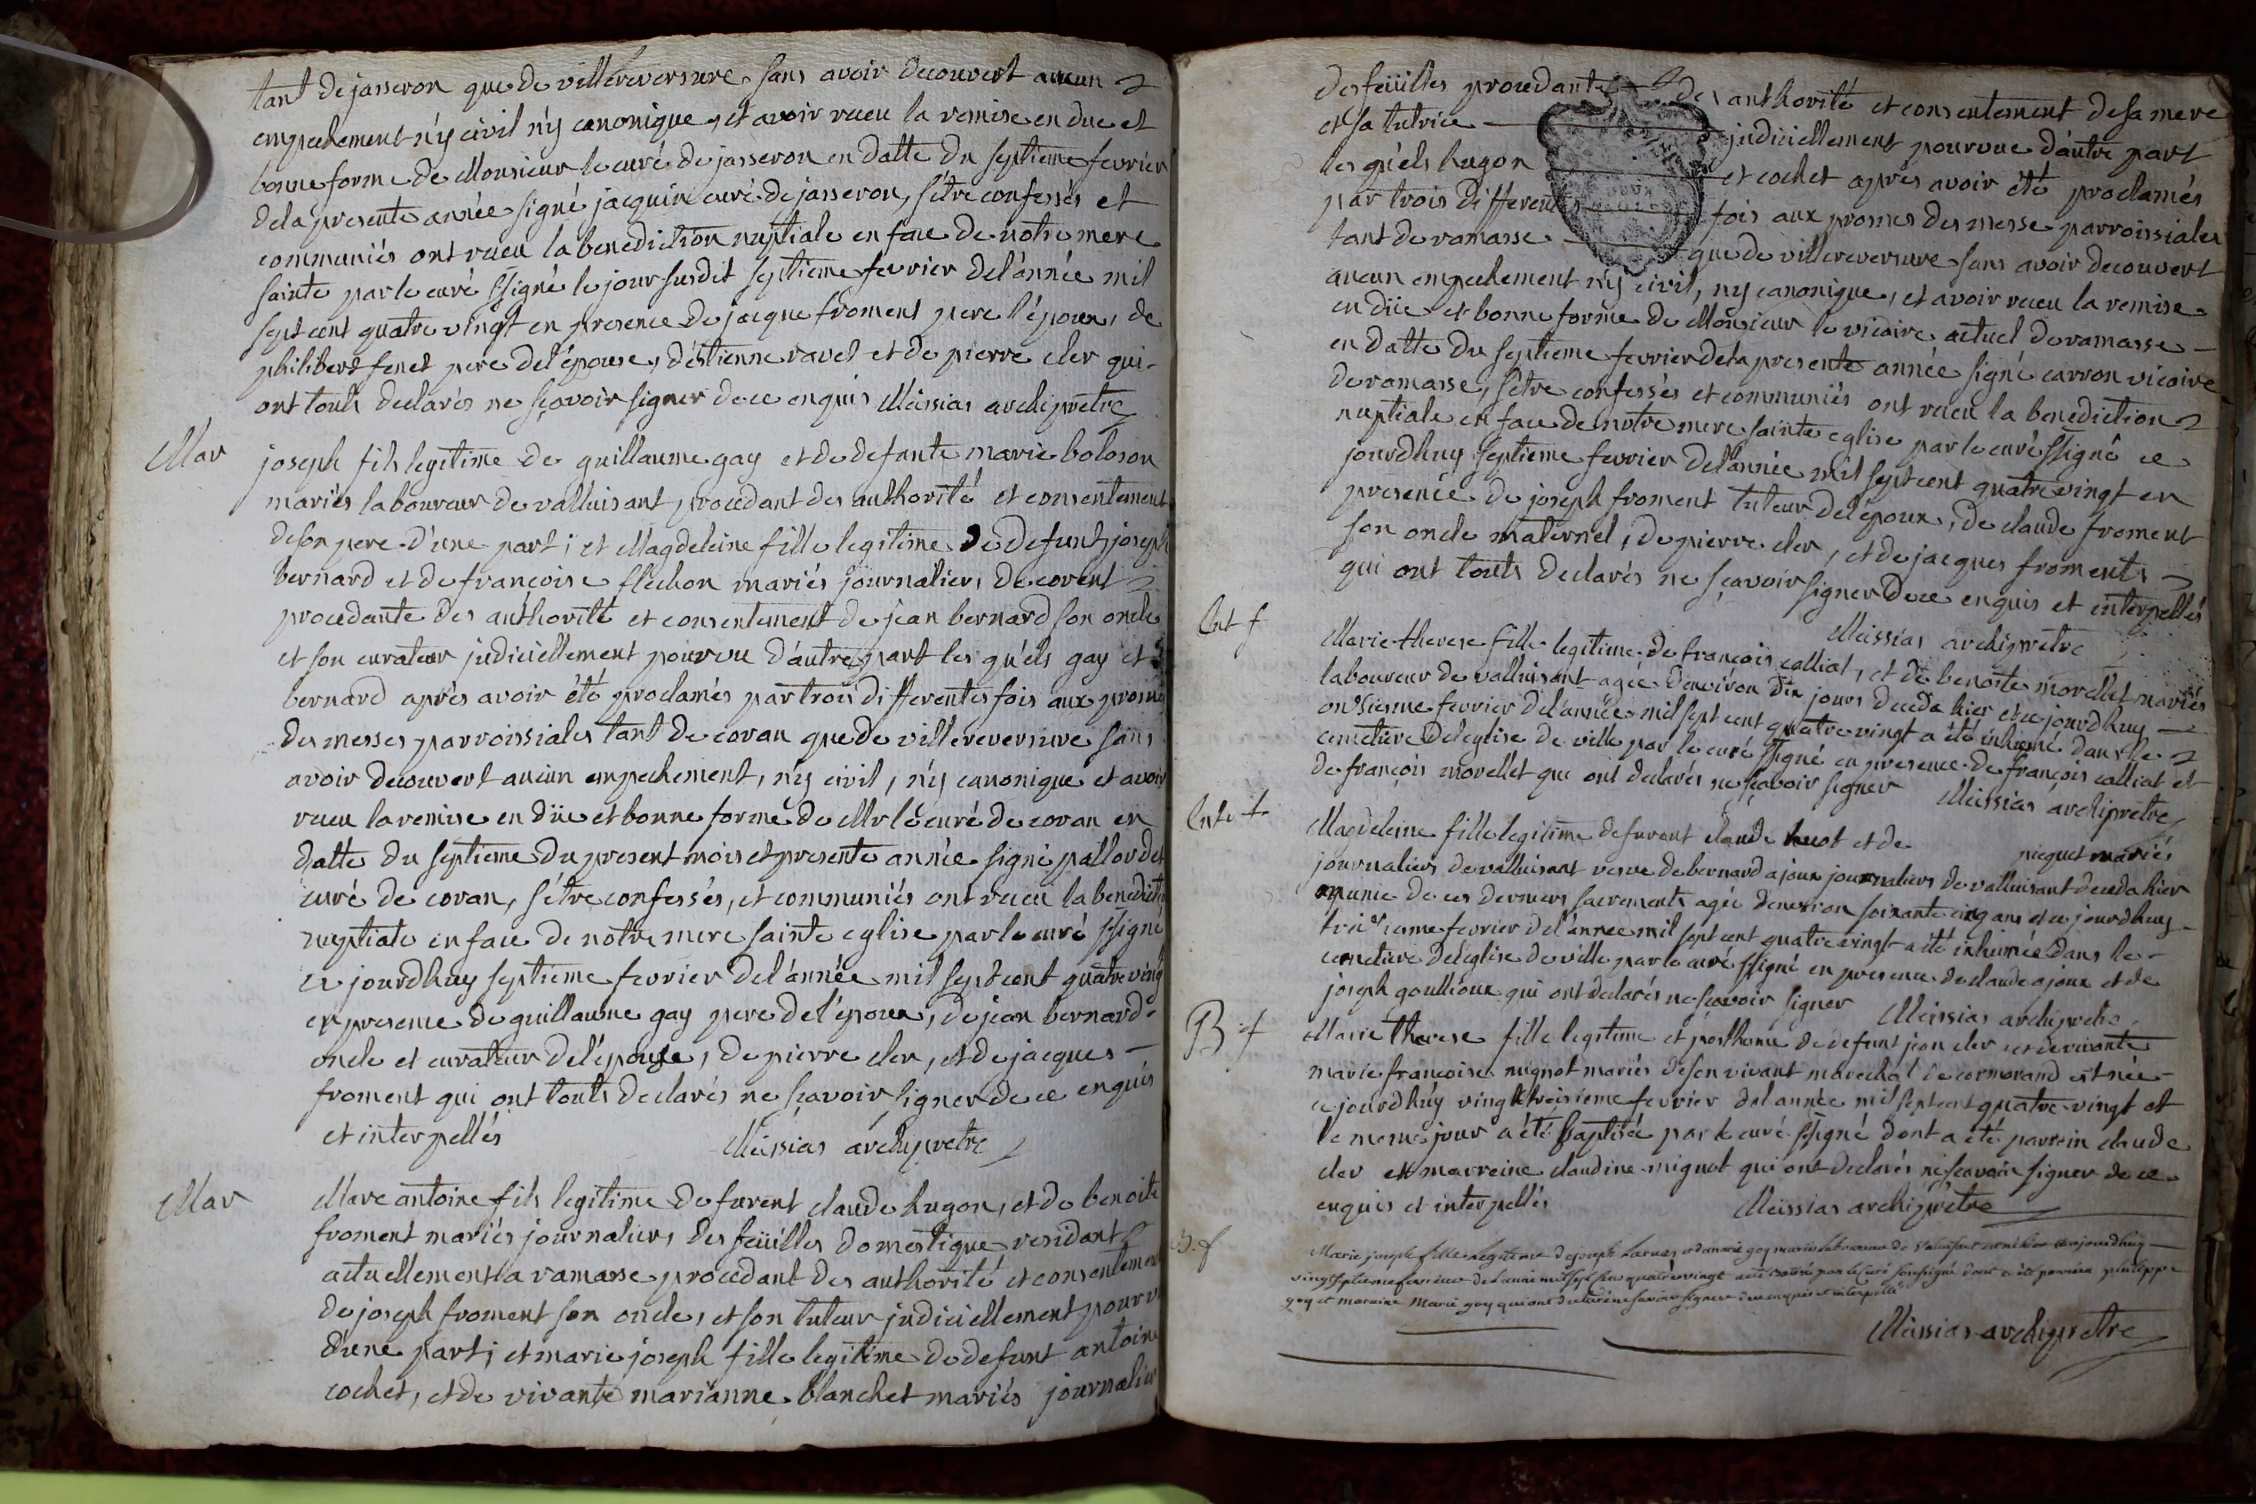 tant de jasseron que de villereversure sans avoir decouvert aucun
empechement n'y civil n'y canonique, et avoir receu la remise en due et
bonne forme de Monsieur le curé de jasseron en datte du septieme fevrier
de la presente année signé jacquin curé de jasseron, s'étre confessés et
communiés ont receu la benediction nuptiale en face de notre mere
sainte par le curé ssigné le jour susdit septieme fevrier del'année mil
sept cent quatre vingt en presence de jacque froment pere l'époux, de
philibert fenet pere del'épouse, d'éstienne ravel et de pierre cler qui
ont touts declarés ne sçavoir signer de ce enquis Meissias archiprétre
Mar
joseph fils legitime de guillaume gay et de defunte marie boloson
mariés laboureur de valluisant, procedant des authorité et consentement
de son pere d'une part; et Magdeleine fille legitime de defunt joseph
bernard et de françoise flechon mariés journaliers de corent
procedante des authorité et consentement de jean bernard son oncle
et son curateur judiciellement pourvu d'autre part les qu'els gay et
bernard aprés avoir été proclamés par trois differentes fois aux prosnes
des messes parroissiales tant de coran que de villereversure sans
avoir decouvert aucun empechement, n'y civil, n'y canonique et avoir
receu la remise en düe et bonne forme de Mr le curé de coran en
datte du septieme du present mois et presente année signé pallordet
curé de coran, s'étre confessés, et communiés ont receu la benediction
nuptiale en face de notre mere sainte eglise par le curé ssigné
ce jourdhuy septieme fevrier del'année mil sept cent quatre vingt
en presence de guillaume gay pere de l'époux, de jean bernard
oncle et curateur del'épouse, de pierre cler, et de jacques
froment qui ont touts declarés ne sçavoir signer de ce enquis
et interpellés Meissias archiprétre
Mar
Marc antoine fils legitime de furent claude hugon, et de benoite
froment mariés journaliers des feüilles domestique residant
actuellement a ramasse procedant des authorité et consentement
de joseph froment son oncle, et son tuteur judiciellement pourvu
d'une part; et marie joseph fille legitime de defunt antoine
cochet, et de vivante marianne blanchet mariés journalier
des feüilles procedante des authorité et consentement de sa mere
et sa tutrice judiciellement pourvue d'autre part
les qu'els hugon et cochet aprés avoir été proclamés
par trois differentes fois aux prosnes des messe parroissiales
tant de ramasse que de villereversure sans avoir decouvert
aucun empechement n'y civil, ny canonique, et avoir receu la remise
en düe et bonne forme de Monsieur le vicaire actuel de ramasse
en datte du septieme fevrier de la presente année signé carron vicaire
de ramasse, s'étre confessés et communiés ont receu la benediction
nuptiale en face de notre mere sainte eglise par le curé ssigné ce
jourdhuy septieme fevrier del'année mil sept cent quatre vingt en
presence de joseph froment tuteur del'époux, de claude froment
son oncle maternel, de pierre cler, et de jacques froments
qui ont touts declarés ne sçavoir signer de ce enquis et interpellés
Meissias archiprétre
Ent f
Marie therese fille legitime de françois calliat, et de benoite morellet mariés
laboureur de valluisant agée d'environ dix jours deceda hier et ce jourdhuy
onzieme fevrier del'année mil sept cent quatre vingt a été inhumé dans le
cemetiere del'eglise de ville par le curé ssigné en presence de françois calliat et
de françois morellet qui ont declarés ne sçavoir signer Meissias archiprétre
Ent f
Magdeleine fille legitime de furent claude huot et de picquet mariés
journaliers de valluisant veuve de bernard ajoux journaliers de valluisant deceda hier
munie de ces derniers sacrements agée d'environ soixante cinq ans et ce jourdhuy
treizieme fevrier del'année mil sept cent quatre vingt a été inhumée dans le
cemetiere del'eglise de ville par le curé ssigné en presence de claude ajoux et de
joseph goullioux qui ont declarés ne sçavoir signer Meissias archiprétre
B f
Marie therese fille legitime et posthume de defunt jean cler et de vivante
marie françoise mignot mariés de son vivant marechal de cormorand est née
ce jourdhuy vingt troisieme fevrier del'année mil sept cent quatre vingt et
le meme jour a été baptisée par le curé ssigné dont a été parrein claude
cler et marreine claudine mignot qui ont declarés ne sçavoir signer de ce
enquis et interpellés Meissias archiprétre
B. f
Marie joseph fille legitime de joseph et d'anne gay mariés laboureur de valuisant et ce jourdhuy
vingt septieme fevrier de l'année mil sept cent quatre vingt a été par le curé soussigné dont a été parrein philippe
gay et maraine Marie gay qui ont declaré ne savoir signer de ce enquis et interpellé
Meissias archiprétre